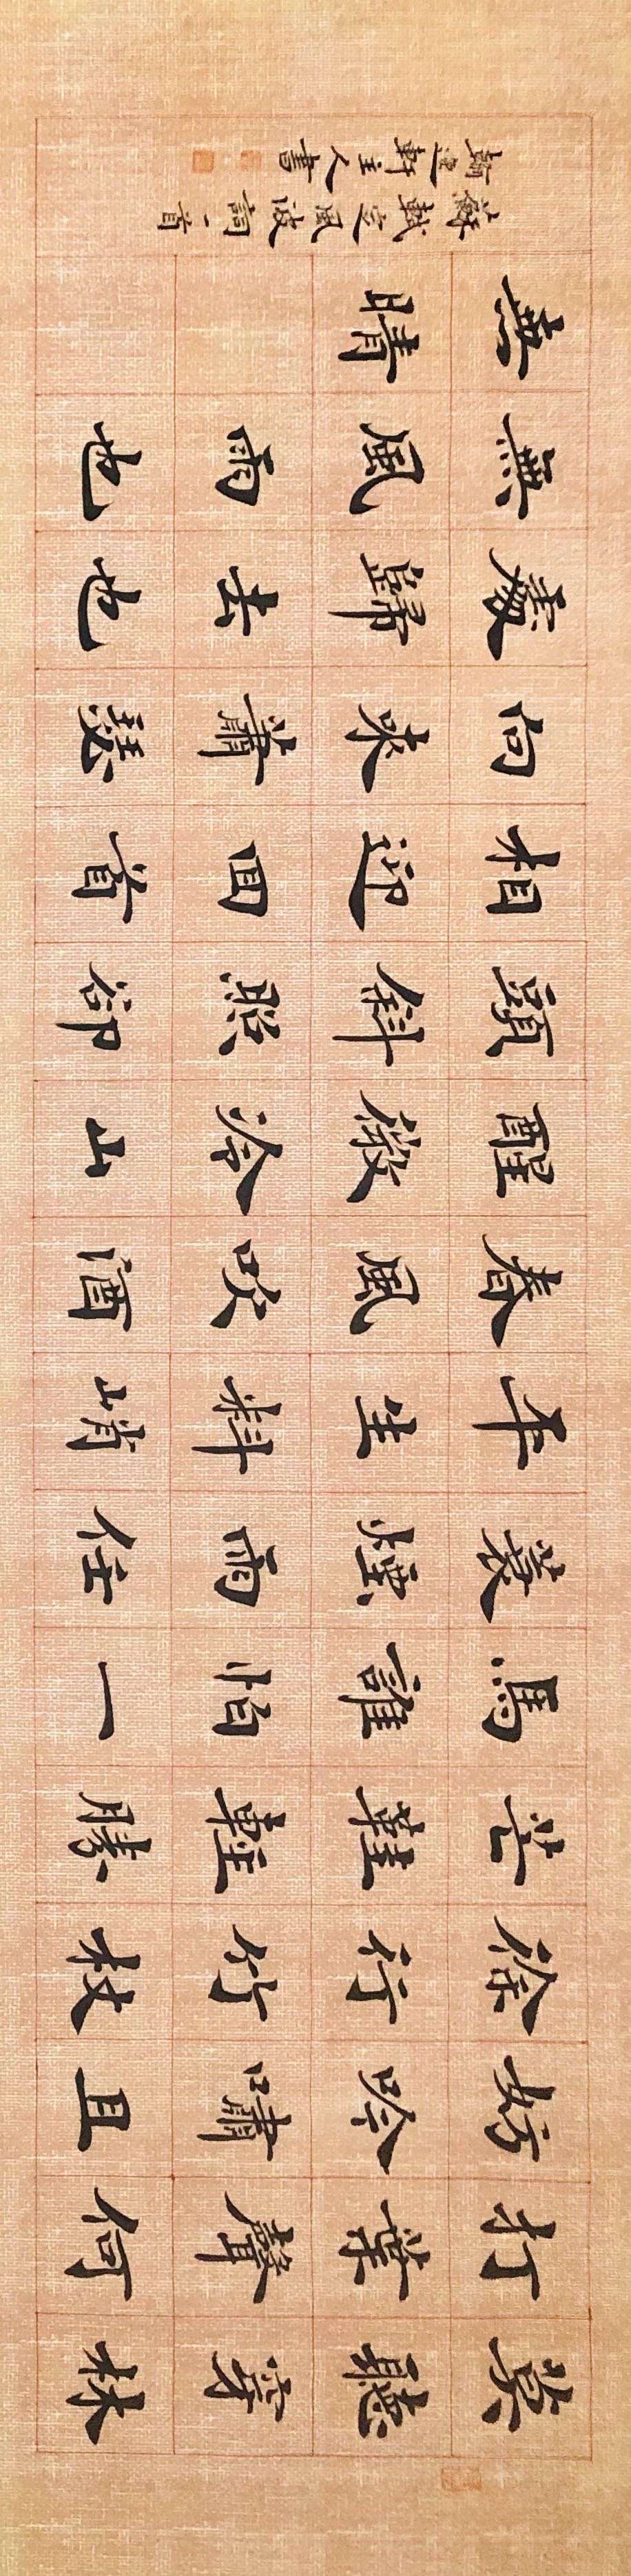 莫聽穿林
打葉聲何
妨吟嘯且
徐行竹杖
芒鞋輕勝
馬誰怕一
蓑煙雨任
平生料峭
春風吹酒
醒微冷山
頭斜照卻
相迎回首
向來蕭瑟
處歸去也
無風雨也
無晴
蘇軾定風波詞一首
翰軒主人書